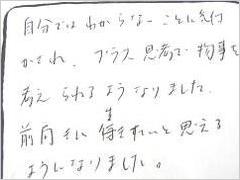 自分ではわからなーことに気付
かされ、プラス思考で物事を
考えられるようなりました。
前向きに生きたいと思える
ようになりました。